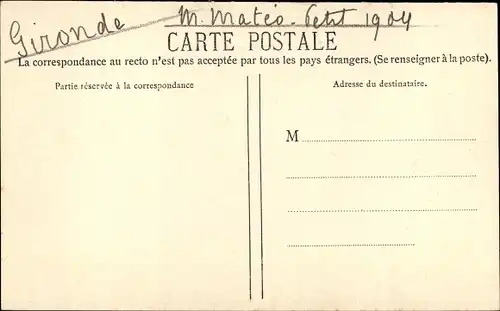 Gironde
M. Mateo - Petit 1904
CARTE POSTALE
La correspondance au recto n'est pas acceptée par tous les pays étrangers. (Se renseigner à la poste).
Partie réservée à la correspondance
Adresse du destinataire.
M